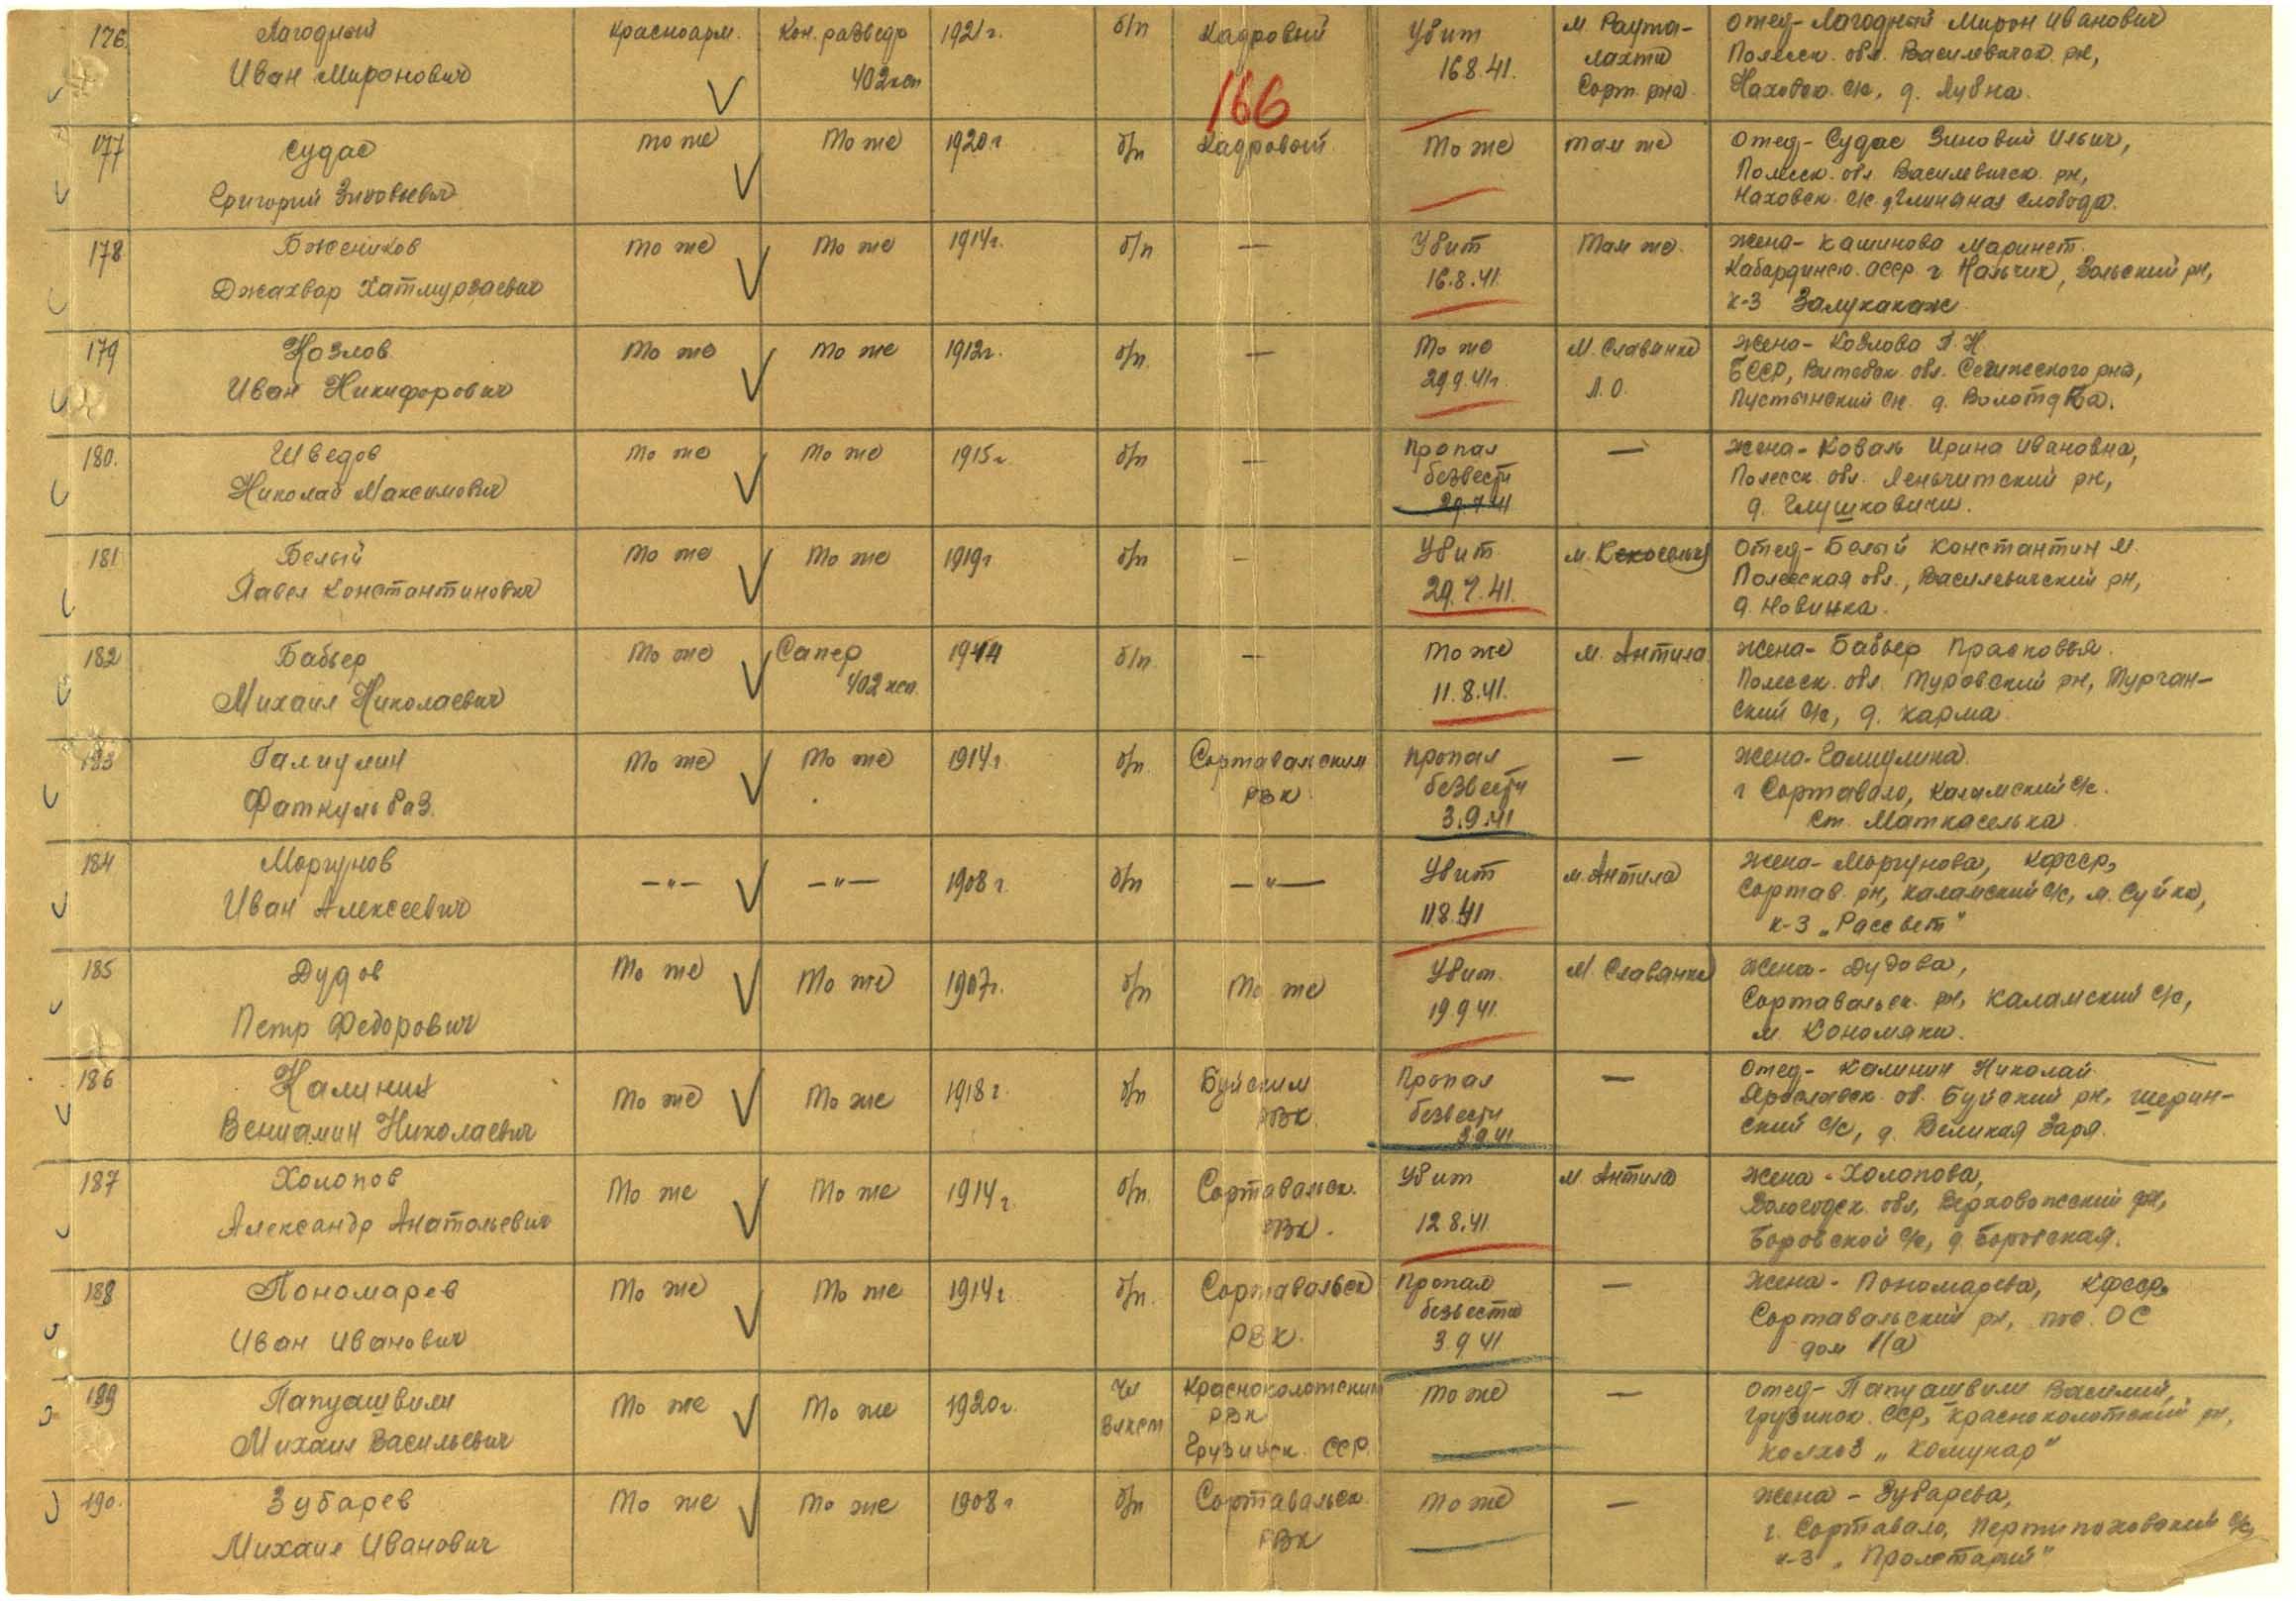 176. Лагодный Красноарм. Кон. разведр 1921г. б/п Кадровый Убит м. Раута- отец- Лагодный Мирон Иванович
Иван Миронович 402 ксп 16.8.41. лахти Полесск. обл. Василевичск. рн,
166 Сорт. рна Наховск. с/с, д. Лубна.
177 Судас То же То же 1920г б/п Кадровый То же там же отец- Судас Зиновий Ильич,
Григорий Зиновьевич Полесск. обл Василевичск. рн,
Наховск. с/с. д. Глиная слобода.
178 Бжеников То же То же 1914г. б/п — Убит Там же. жена- Кашинова Маринет.
Джахвар Хатмурзаевич 16.8.41. Кабардинск. АССР г. Нальчик, Зольский рн,
к-з Залукакаж
179 Козлов То же То же 1913г. б/п — То же М. Славянка жена- Козлова П. Н
Иван Никифорович 29.9.41г. Л.О. БССР, Витебск. обл. рна,
Пустынский с/с. д.
180. Шведов То же То же 1915г б/п — Пропал — жена- Коваль Ирина Ивановна,
Николай Максимович безвести Полесск. обл. Леньчитский рн,
29.7.41 д. Глушковичи.
181 Белый То же То же 1919г б/п - Убит м. отец- Белый Константин М.
Павел Константинович 29.7.41. Полесская обл., Василевичский рн,
д. Новинка.
182 Бабьер То же Сапер 19 б/п. — То же м. Антила. жена- Бабьер Прасковья.
Михаил Николаевич 402 ксп. 11.8.41. Полесск. обл. Туровский рн, Турган-
ский с/с, д. Карма.
183 Галиулин То же То же 1914г б/п. Сортавальским пропал — жена- Галиулина.
Фаткульбаз. РВК. безвести г Сортавало, Каламский с/с.
3.9.41 ст. Маткаселька.
184 Моргунов —"— —"— 1908г б/п —"— Убит м. Антила жена- Моргунова, КФССР,
Иван Алексеевич 11.8.41 Сортав. рн, Каламский с/с, м. Суйка,
к-з „Рассвет"
185 Дудов То же То же 1907г. б/п То же Убит. М. Славянка жена- Дудова,
Петр Федорович 19.9.41. Сортавальск. рн, Каламский с/с,
м. Кономяки.
186 Калинин То же То же 1918г б/п Буйским Пропал — отец- Калинин Николай
Вениамин Николаевич РВК. безвести Ярославск. об. Буйский рн, Шерин-
3.9.41 ский с/с, д. Великая Заря.
187 Холопов То же То же 1914г. б/п. Сортавальск. Убит м. Антила жена - Холопова,
Александр Анатольевич РВК. 12.8.41. Вологодск. обл, Верховожский рн,
Боровской с/с, д. Боровская.
188 Пономарев То же То же 1914г б/п. Сортавальск Пропал — жена - Пономарева, КФССР,
Иван Иванович РВК. безвести Сортавальский рн, пос. ОС
3.9.41. дом 1(а)
189 Папуашвили То же То же 1920г. чл Красноколотским То же — отец- Папуашвили Василий,
Михаил Васильевич ВЛКСМ РВК Грузинск. ССР, Красноколотский рн,
Грузинск. ССР. колхоз „Комунар"
190. Зубарев То же То же 1908г б/п Сортавальск. То же — жена - Зубарева,
Михаил Иванович РВК г. Сортавало, с/с,
к-з „Пролетарий"